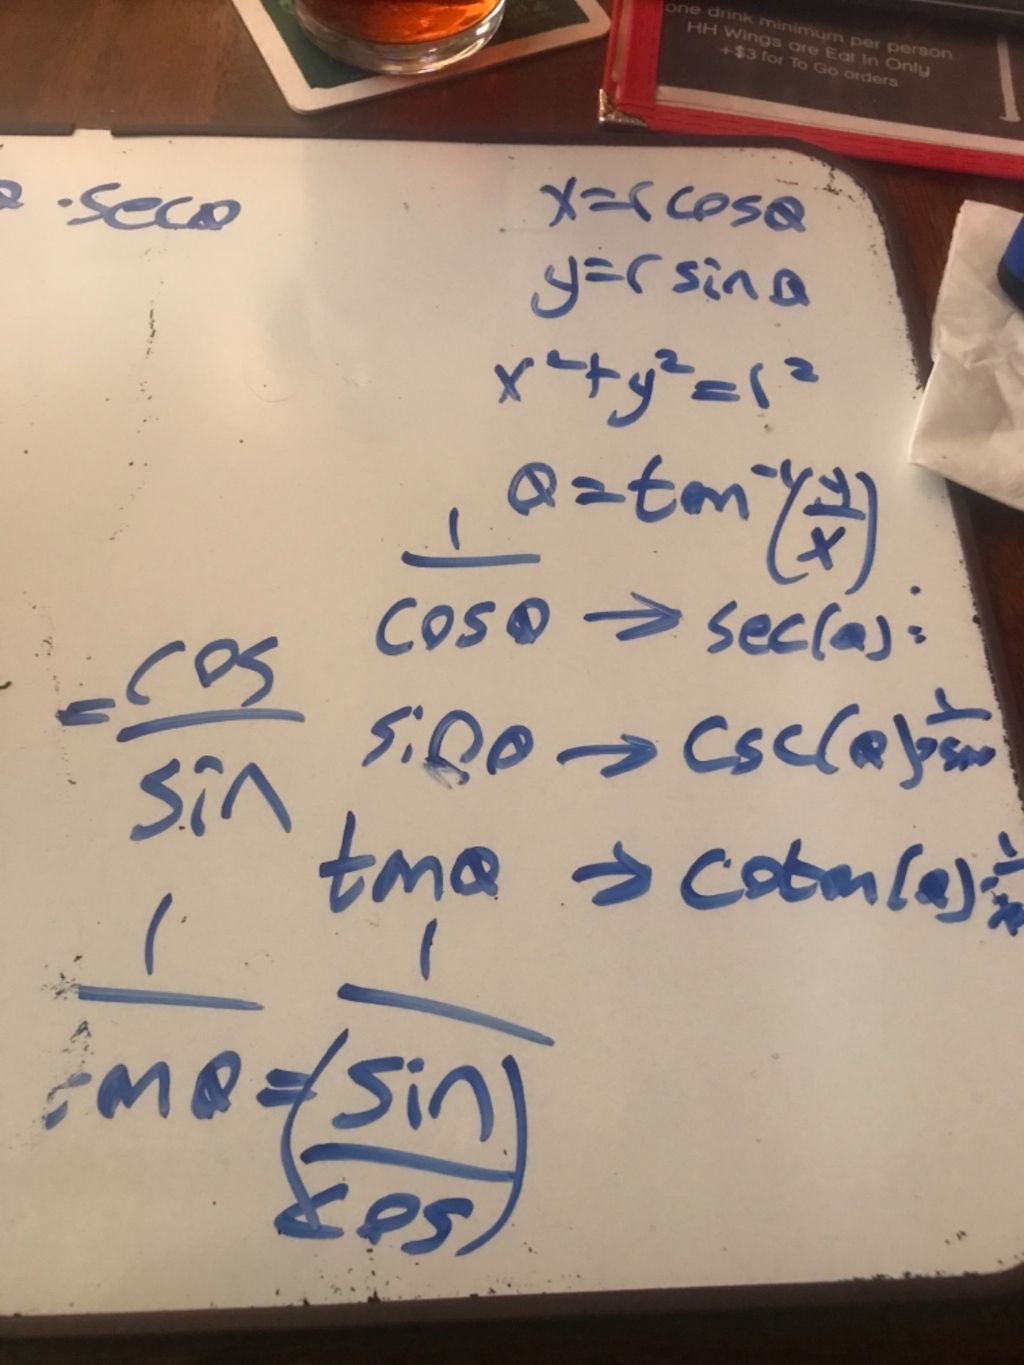 one drink minimum per person
HH Wings are Eat In Only
+$3 for To Go orders
· secθ
x = r cosθ
y = r sinθ
x² + y² = r²
θ = tan⁻¹(y/x)
1/cosθ → sec(θ):
sinθ → csc(θ): 1/sinθ
tanθ → cotan(θ):
= cos/sin
1/tanθ = 1/(sin/cos)